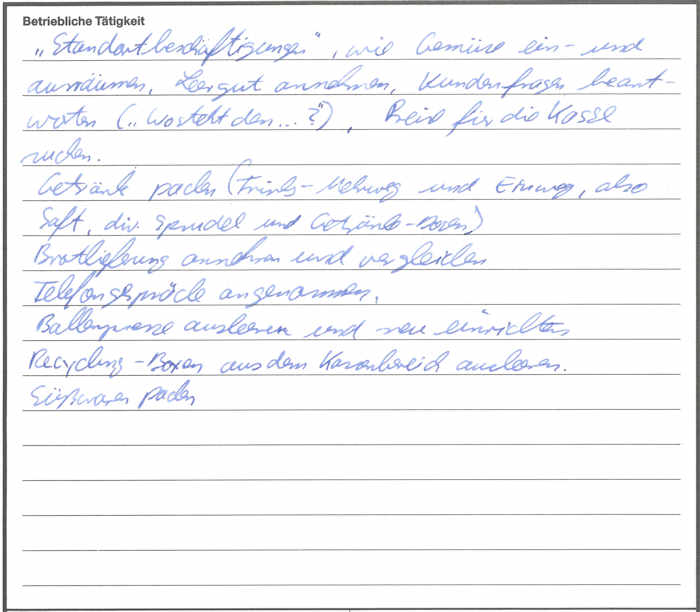 Betriebliche Tätigkeit
„Standortbeschäftigungen", wie Gemüse ein- und
ausräumen, Leergut annehmen, Kundenfragen beant-
worten („Wo steht den...?"), Preise für die Kasse
suchen.
Getränk packen (Trink-Mehrweg und Einweg, also
Saft, div. Sprudel und Getränke-Boxen)
Brotlieferung annehmen und vergleichen
Telefongespräche angenommen.
Ballenpresse ausleeren und neu einrichten
Recycling-Boxen aus dem Kassenbereich ausleeren.
Süßwaren packen